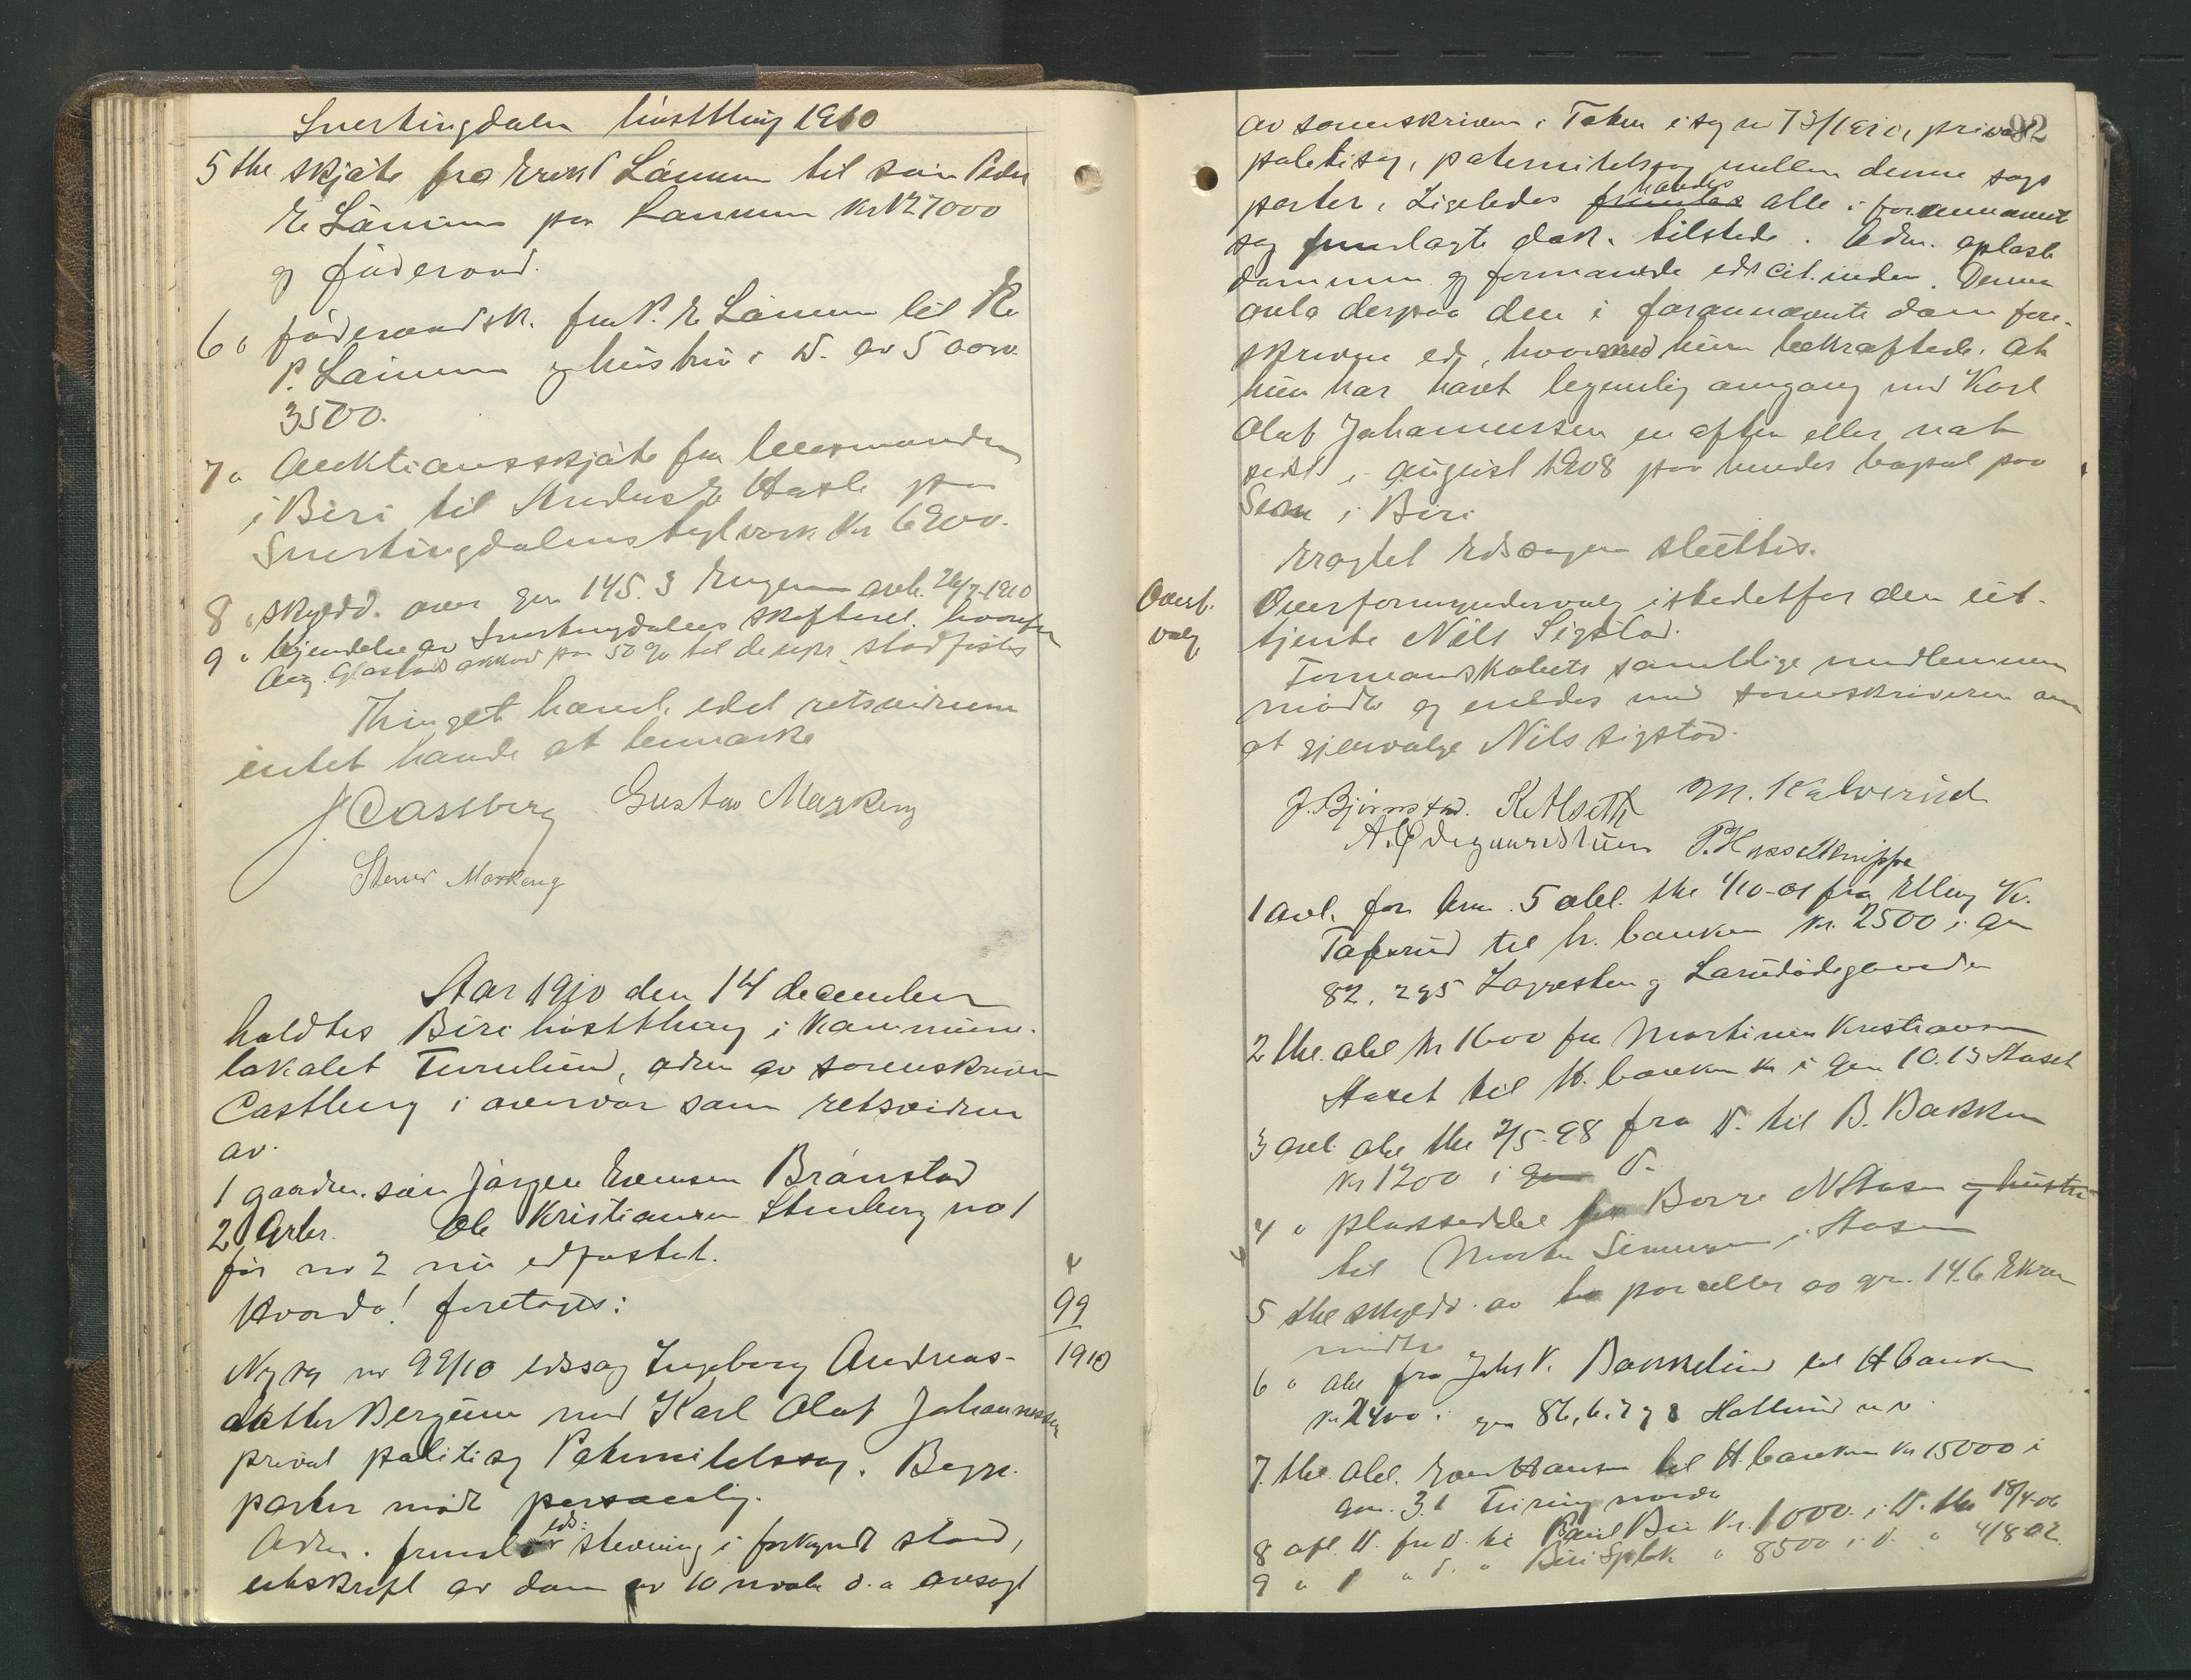 Snertingdalen høstthing 1910
5 thl skjøte fra Erik P Lønnum til søn Peder
E Lønnum paa Lønnum Kr 27000
og føderaad.
6 " føderaadsk. fra P. E Lønnum til E.
P. Lønnum og hustru i D. av 5 aarv.
3500.
7 " Auktionsskjøte fra lensmanden
i Biri til Andreas E Hasle paa
Snertingdalens teglverk Kr 6900.
8 " Skyldd. over gn 145. 3 Engen avh. 26/7 1910
9 " kjendelse av Snertingdalens skifteret hvorefter
Aug. Glæstads akkord paa 50 % til de upr. stadfæstes
Thinget hævet, idet retsvidnene
intet havde at bemærke
J Castberg Gustav Markeng
Stener Markeng
Aar 1910 den 14 december
holdtes Biri høstthing i kommune-
lokalet Furulund, adm av sorenskriver
Castberg i overvær som retsvidner
av.
1 gaardm. søn Jørgen Evensen Brønstad
2 Arbr. Ole Kristiansen Stenberg no 1
før no 2 nu edfæstet.
Hvorda! foretoges:
4
99
1910
Ny sag no 99/10 edssag Ingeborg Andreas-
datter Bergum mod Karl Olaf Johannessen
privat politisag Paternitetssag. Begge
parter mødt personlig.
Adm. freml. eds: stevning i forkyndt stand,
utskrift av dom av 10 novbr d. a avsagt
92
av sorenskriveren i Toten i sag no 73/1910, privat
politisag, paternitetssag mellem denne sags
parter. Ligeledes havdes alle i forannævnte
sag fremlagte dok. tilstede. Adm. oplæste
dommen og formanede edscit.inden. Denne
avla derpaa den i forannævnte dom fore-
skrevne ed, hvorved hun bekræftede, at
hun har havt legemlig omgang med Karl
Olaf Johannessen en aften eller nat
sidst i august 1908 paa hendes bopæl paa
Seon i Biri
Eragtet Edssagen sluttes.
Overf.
valg
Overformyndervalg istedetfor den ut-
tjente Nils Sigstad.
Formandskabets samtlige medlemmer
mødte og enedes med sorenskriveren om
at gjenvælge Nils Sigstad.
J. Bjørnstad. K Alseth M. Kalverud
A. Ødegaardstuen P. Hasselknippe
1 avl. for Anm. 5 obl. thl 4/10-01 fra Elling K.
Tofterud til h. banken Kr. 2500 i gn
82. 2 & 5 Lappesten og Larsødegaarden
2 thl. obl Kr 1600 fra Martinius Kristiansen
Staset til H. banken i gn 10.13 Staset
3 avl. obl thl 2/5-98 fra D. til B. Bakken
Kr 1200 i gn D.
4 " pladsseddel fra Borre N Stasen og hustru
til Morten Simensen i Stasen
5 thl skyldd. av to parceller av gn. 14.6 Ekren
midtre
6 " obl fra Johs K. Bakkelund til H banken
Kr 2400 i gn 86, 6. 7 og 8 Hallund m v.
7. thl. obl. Even Hansen til H. banken Kr 15000 i
gn. 3.1 Furuseng nordre
8 afl. D. fra D. til Paul Bue Kr. 1000. i D. thl 18/4-06
9 " " D. " Biri Spbk " 8500 i D. " 4/8 02